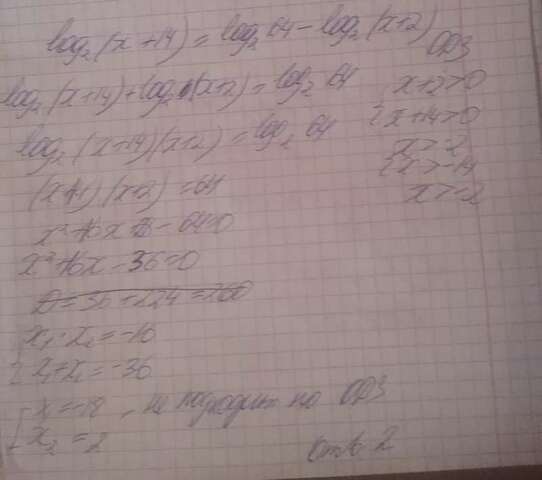 log₂(x+14) = log₂64 - log₂(x+2)
ОДЗ
log₂(x+14)+log₂(x+2) = log₂ 64
x+2>0
x+14>0
log₂(x+14)(x+2) = log₂ 64
x>-2
x>-14
x>-2
(x+2) = 64
- 64=0
x²+16x-36=0
D=36+224=260
x₁·x₂=-16
x₁+x₂=-36
x=-18, не подходит по ОДЗ
x₂=2
Отв 2